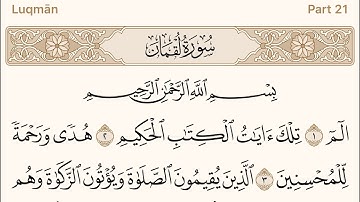 Luqmān Part 21
سُورَةُ لُقْمَانَ
بِسْمِ ٱللَّهِ ٱلرَّحْمَٰنِ ٱلرَّحِيمِ
الٓمٓ ١ تِلْكَ ءَايَاتُ ٱلْكِتَابِ ٱلْحَكِيمِ ٢ هُدًى وَرَحْمَةً
لِّلْمُحْسِنِينَ ٣ ٱلَّذِينَ يُقِيمُونَ ٱلصَّلَوٰةَ وَيُؤْتُونَ ٱلزَّكَوٰةَ وَهُم